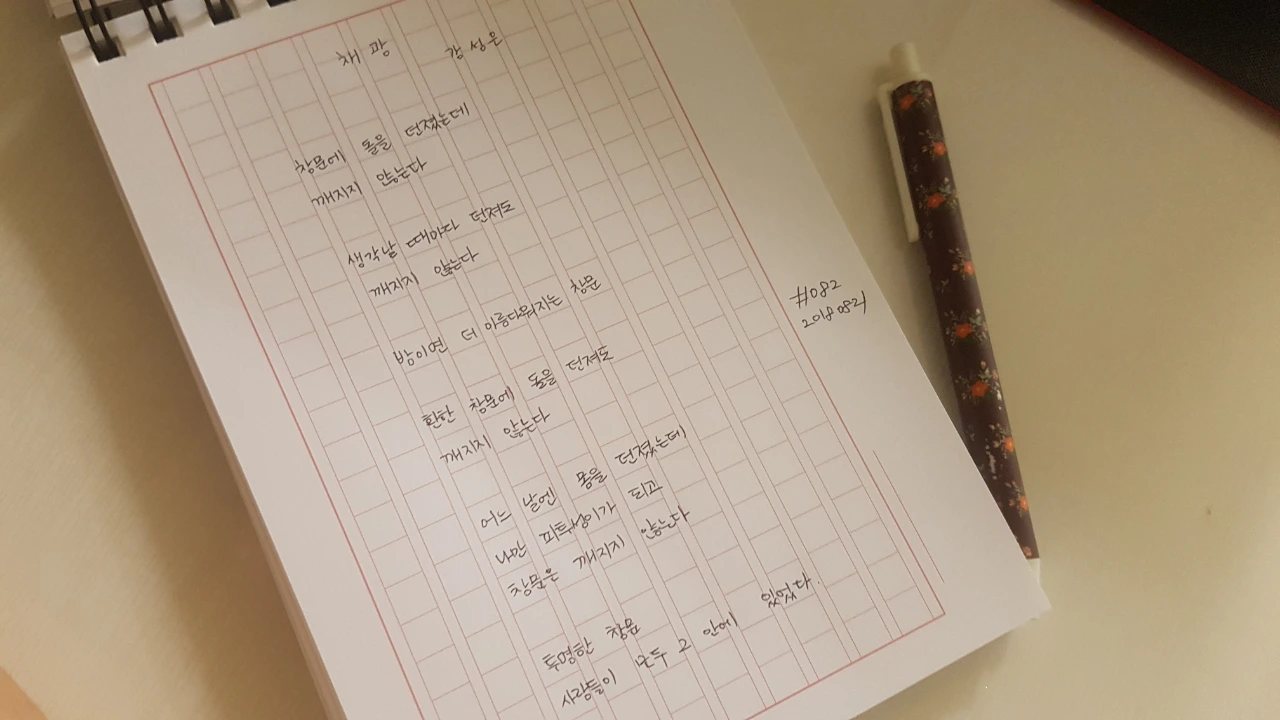 채광 강성은
창문에 돌을 던졌는데
깨지지 않는다
생각날 때마다 던져도
깨지지 않는다
밤이면 더 아름다워지는 창문
환한 창문에 돌을 던져도
깨지지 않는다
어느 날엔 몸을 던졌는데
나만 피투성이가 되고
창문은 깨지지 않는다
투명한 창문
사람들이 모두 그 안에 있었다.
#082
20180821